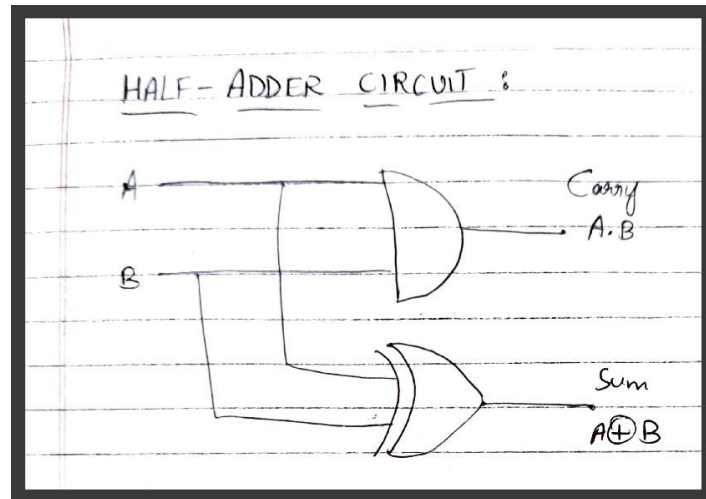 HALF-ADDER CIRCUIT :
A
Carry
A.B
B
Sum
A⊕B